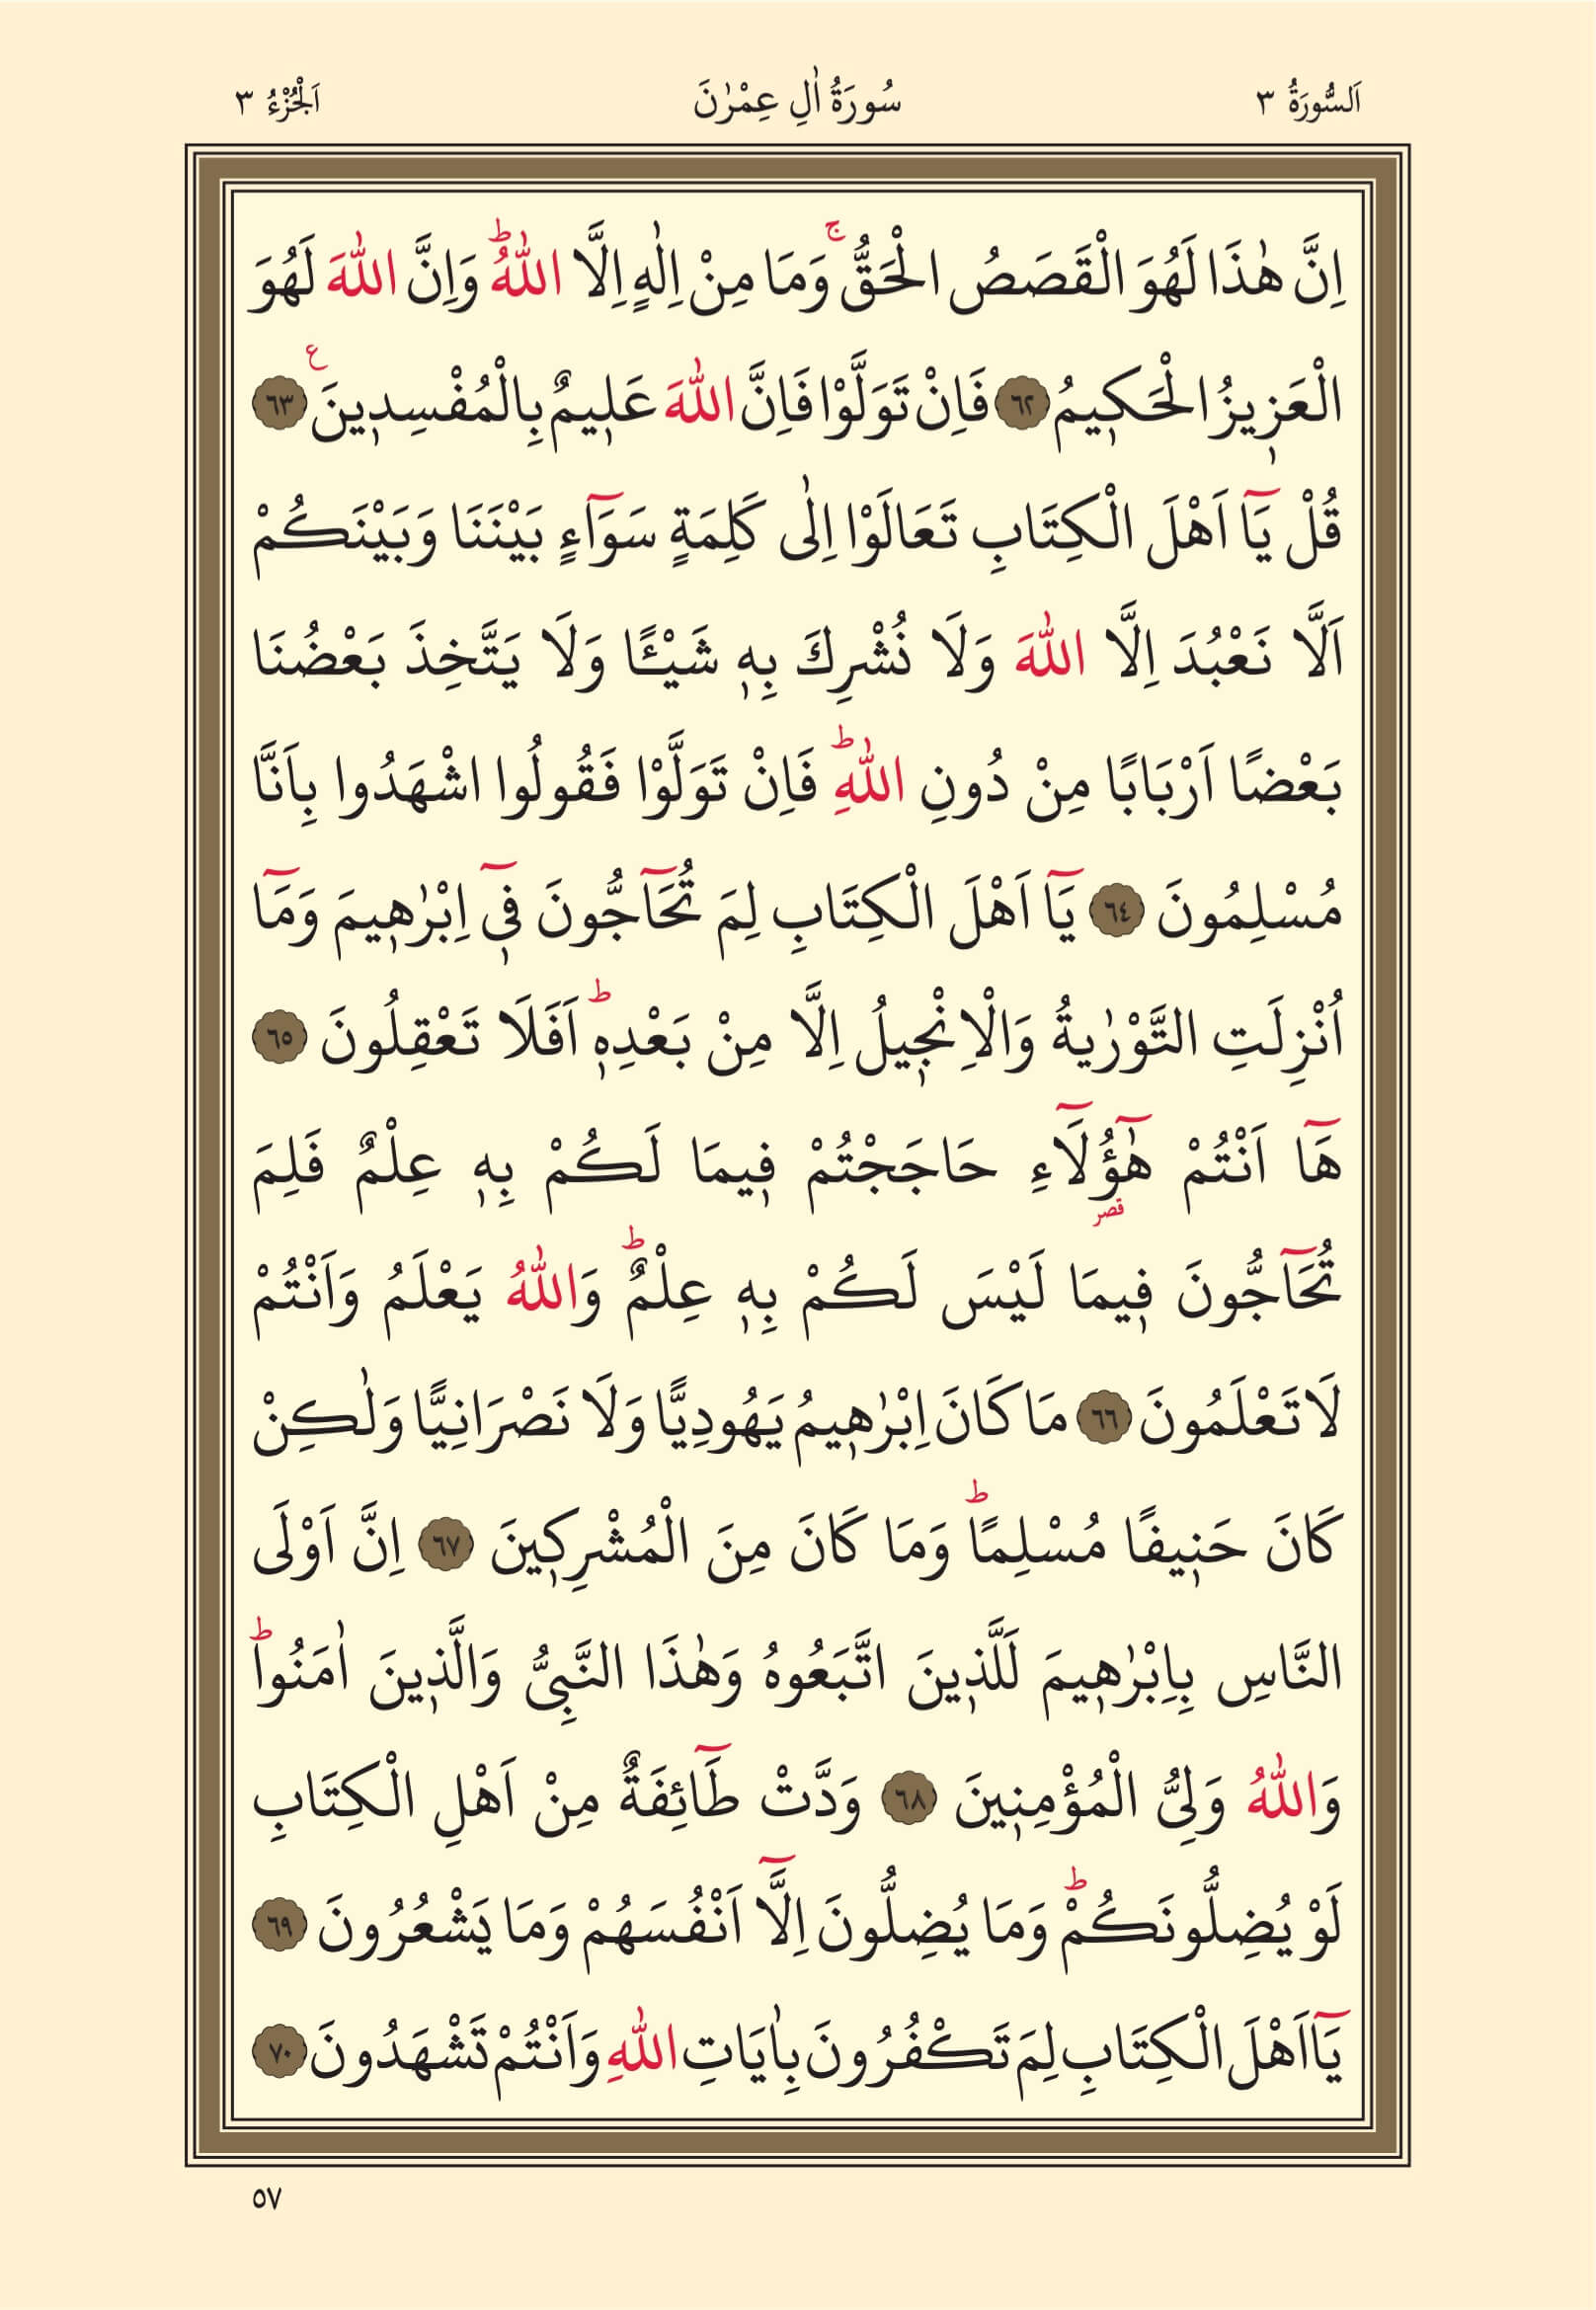 اَلسُّورَةُ ٣
سُورَةُ اٰلِ عِمْرٰنَ
اَلْجُزْءُ ٣
اِنَّ هٰذَا لَهُوَ الْقَصَصُ الْحَقُّۚ وَمَا مِنْ اِلٰهٍ اِلَّا اللّٰهُۜ وَاِنَّ اللّٰهَ لَهُوَ
الْعَز۪يزُ الْحَك۪يمُ ﴿٦٢﴾ فَاِنْ تَوَلَّوْا فَاِنَّ اللّٰهَ عَل۪يمٌ بِالْمُفْسِد۪ينَ۟ ﴿٦٣﴾
قُلْ يَٓا اَهْلَ الْكِتَابِ تَعَالَوْا اِلٰى كَلِمَةٍ سَوَٓاءٍ بَيْنَنَا وَبَيْنَكُمْ
اَلَّا نَعْبُدَ اِلَّا اللّٰهَ وَلَا نُشْرِكَ بِه۪ شَيْـًٔا وَلَا يَتَّخِذَ بَعْضُنَا
بَعْضًا اَرْبَابًا مِنْ دُونِ اللّٰهِۜ فَاِنْ تَوَلَّوْا فَقُولُوا اشْهَدُوا بِاَنَّا
مُسْلِمُونَ ﴿٦٤﴾ يَٓا اَهْلَ الْكِتَابِ لِمَ تُحَٓاجُّونَ ف۪ٓي اِبْرٰه۪يمَ وَمَٓا
اُنْزِلَتِ التَّوْرٰيةُ وَالْاِنْج۪يلُ اِلَّا مِنْ بَعْدِه۪ۜ اَفَلَا تَعْقِلُونَ ﴿٦٥﴾
هَٓا اَنْتُمْ هٰٓؤُ۬لَٓاءِ حَاجَجْتُمْ ف۪يمَا لَكُمْ بِه۪ عِلْمٌ فَلِمَ
قصر
تُحَٓاجُّونَ ف۪يمَا لَيْسَ لَكُمْ بِه۪ عِلْمٌۜ وَاللّٰهُ يَعْلَمُ وَاَنْتُمْ
لَا تَعْلَمُونَ ﴿٦٦﴾ مَا كَانَ اِبْرٰه۪يمُ يَهُودِيًّا وَلَا نَصْرَانِيًّا وَلٰكِنْ
كَانَ حَن۪يفًا مُسْلِمًاۜ وَمَا كَانَ مِنَ الْمُشْرِك۪ينَ ﴿٦٧﴾ اِنَّ اَوْلَى
النَّاسِ بِاِبْرٰه۪يمَ لَلَّذ۪ينَ اتَّبَعُوهُ وَهٰذَا النَّبِيُّ وَالَّذ۪ينَ اٰمَنُواۜ
وَاللّٰهُ وَلِيُّ الْمُؤْمِن۪ينَ ﴿٦٨﴾ وَدَّتْ طَٓائِفَةٌ مِنْ اَهْلِ الْكِتَابِ
لَوْ يُضِلُّونَكُمْۜ وَمَا يُضِلُّونَ اِلَّٓا اَنْفُسَهُمْ وَمَا يَشْعُرُونَ ﴿٦٩﴾
يَٓا اَهْلَ الْكِتَابِ لِمَ تَكْفُرُونَ بِاٰيَاتِ اللّٰهِ وَاَنْتُمْ تَشْهَدُونَ ﴿٧٠﴾
٥٧